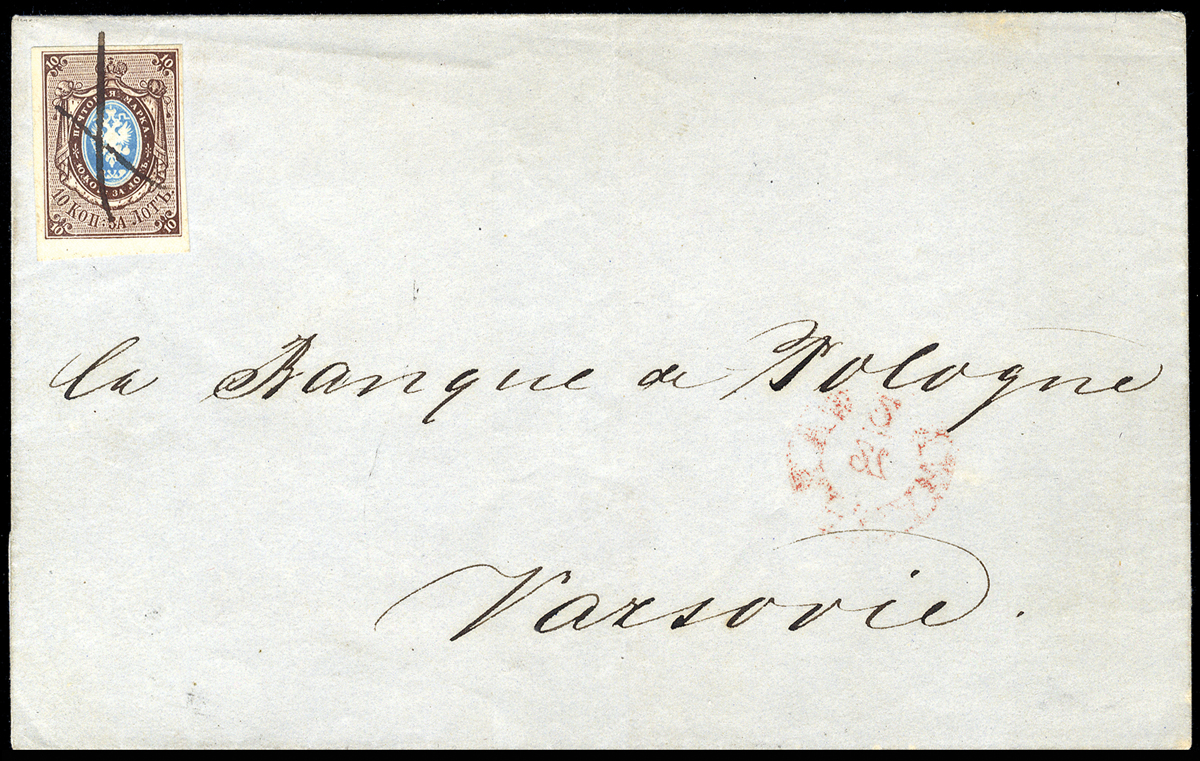 10 10
ПОЧТОВАЯ МАРКА
10 КОП: ЗА ЛОТЪ
10 КОП: ЗА ЛОТЪ.
10 10
la Banque de Pologne
Varsovie.